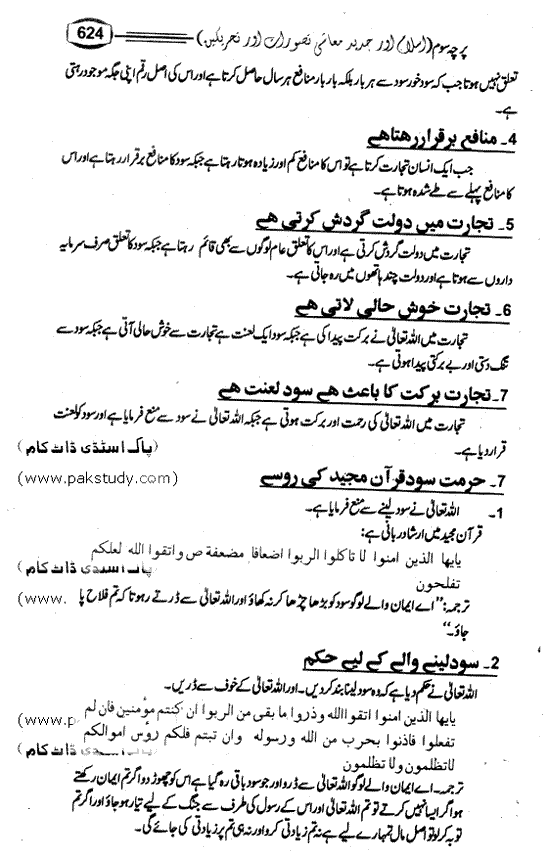 624
پرچہ سوم (اسلام اور جدید معاشی تصورات اور تحریکیں)
تعلق نہیں ہوتا جب کہ سود خور سود سے ہر بار بلکہ بار بار منافع ہر سال حاصل کرتا ہے اور اس کی اصل رقم اپنی جگہ موجود رہتی
ہے۔
4۔ منافع برقرار رھتا ھے
جب ایک انسان تجارت کرتا ہے تو اس کا منافع کم اور زیادہ ہوتا رہتا ہے جبکہ سود کا منافع برقرار رہتا ہے اور اس
کا منافع پہلے سے طے شدہ ہوتا ہے۔
5۔ تجارت میں دولت گردش کرتی ھے
تجارت میں دولت گردش کرتی ہے اور اس کا تعلق عام لوگوں سے بھی قائم رہتا ہے جبکہ سود کا تعلق صرف سرمایہ
داروں سے ہوتا ہے اور دولت چند ہاتھوں میں رہ جاتی ہے۔
6۔ تجارت خوش حالی لاتی ھے
تجارت میں اللہ تعالیٰ نے برکت پیدا کی ہے جبکہ سود ایک لعنت ہے تجارت سے خوش حالی آتی ہے جبکہ سود سے
تنگ دستی اور بے برکتی پیدا ہوتی ہے۔
7۔ تجارت برکت کا باعث ھے سود لعنت ھے
تجارت میں اللہ تعالیٰ کی رحمت اور برکت ہوتی ہے جبکہ اللہ تعالیٰ نے سود سے منع فرمایا ہے اور سود کو لعنت
قرار دیا ہے۔
(پاک اسٹڈی ڈاٹ کام)
7۔ حرمت سود قرآن مجید کی روسے
(www.pakstudy.com)
1۔ اللہ تعالیٰ نے سود لینے سے منع فرمایا ہے۔
قرآن مجید میں ارشاد ربانی ہے:
یایھا الذین امنوا لا تاکلوا الربوا اضعافا مضعفة ص واتقوا الله لعلکم
پاک اسٹڈی ڈاٹ کام)
تفلحون
ترجمہ: ”اے ایمان والے لوگو سود کو بڑھا چڑھا کر نہ کھاؤ اور اللہ تعالیٰ سے ڈرتے رہو تا کہ تم فلاح پا
(www.
جاؤ۔“
2۔ سود لینے والے کے لیے حکم
اللہ تعالیٰ نے حکم دیا ہے کہ وہ سود لینا بند کر دیں۔ اور اللہ تعالیٰ کے خوف سے ڈریں۔
یایھا الذین امنوا اتقوا الله وذروا ما بقی من الربوا ان کنتم مؤمنین فان لم
(www.p
تفعلوا فاذنوا بحرب من الله ورسوله وان تبتم فلکم رؤس اموالکم
پاک اسٹڈی ڈاٹ کام)
لاتظلمون ولا تظلمون
ترجمہ۔ اے ایمان والے لوگو اللہ تعالیٰ سے ڈرو اور جو سود باقی رہ گیا ہے اس کو چھوڑ دو اگر تم ایمان رکھتے
ہو اگر ایسا نہیں کرتے تو تم اللہ تعالیٰ اور اس کے رسول کی طرف سے جنگ کے لیے تیار ہو جاؤ اور اگر تم
توبہ کر لو تو اصل مال تمہارے لیے ہے نہ تم زیادتی کرو اور نہ ہی تم پر زیادتی کی جائے گی۔